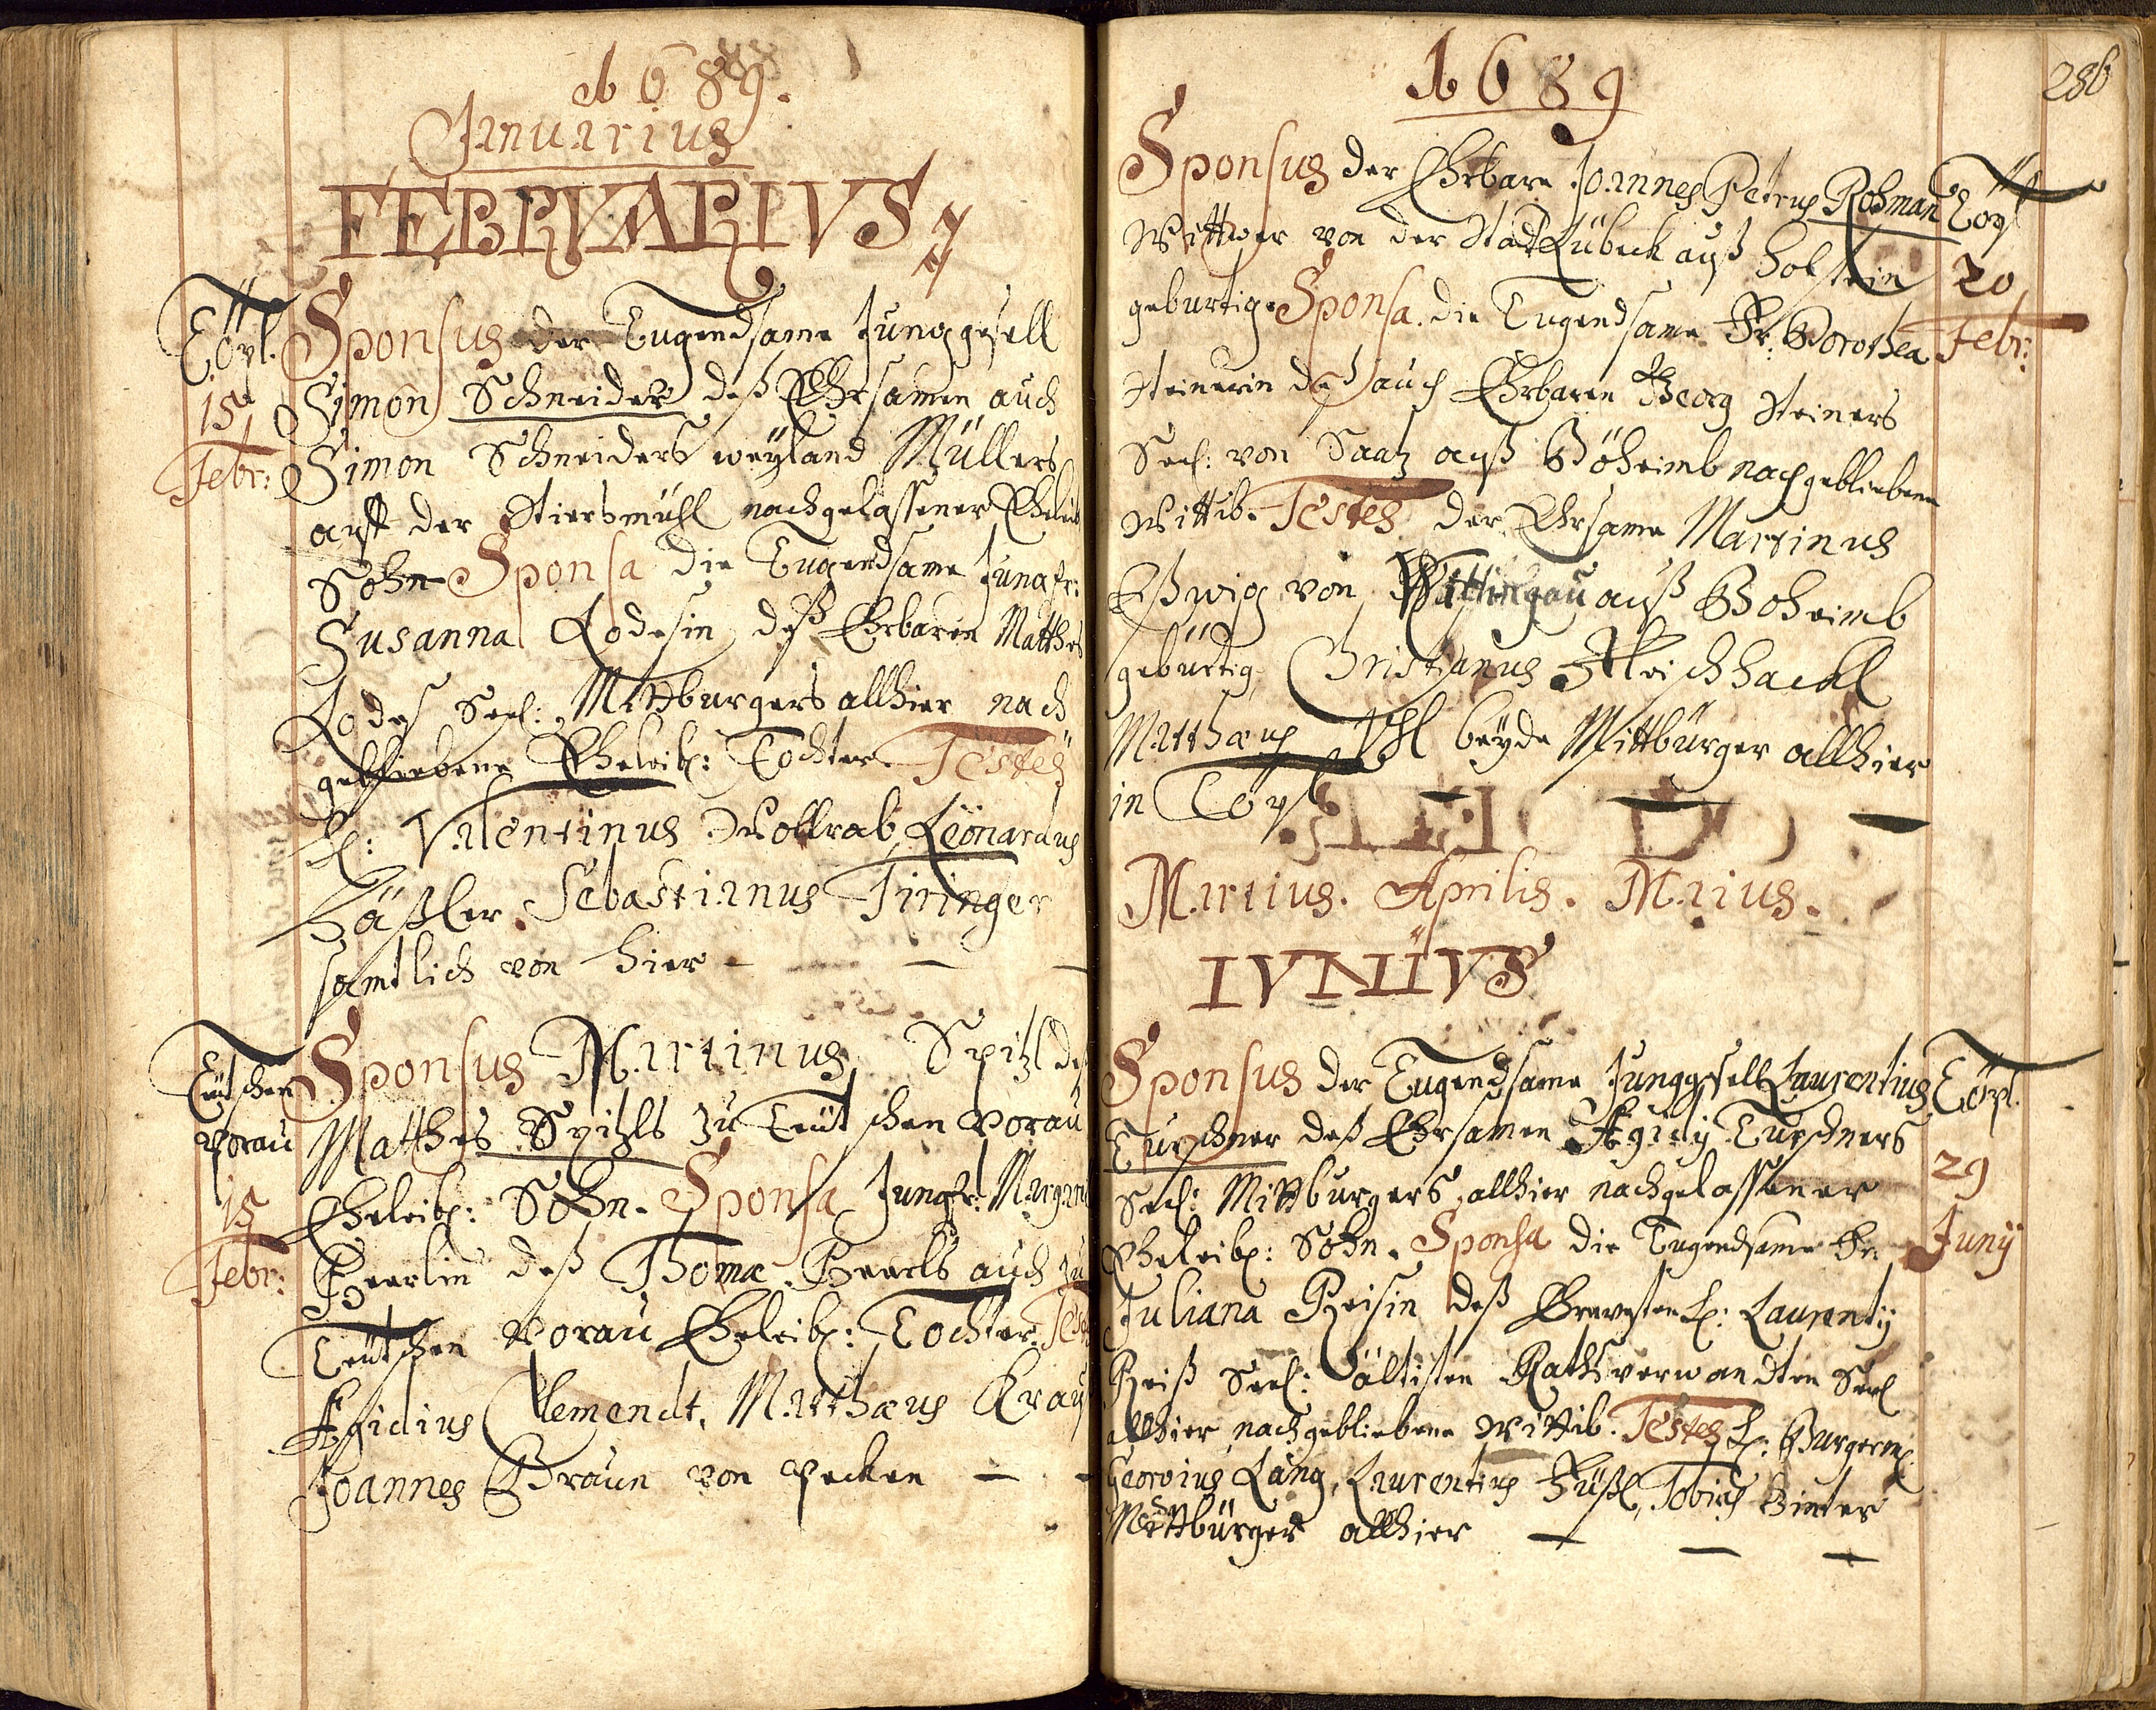 1689.
Januarius
FEBRVARIVS
Töpl.
15
Febr:
Sponsus der Tugendsame Junggesell
Simon Schneider deß Ehrsamen auch
Simon Schneiders weÿland Müllers
auff der Stiersmühl nachgelassener Eheleib
Sohn Sponsa die Tugendsame Jungfr:
Susanna Lodesin deß Ehrbaren Matthes
Lodes Seel: Mittburgers allhier nach
gebliebene Eheleibl: Tochter. Testes
H: Valentinus Wollrab, Leonardus
Häßler. Sebastianus Tiringer
samtlich von hier
Teütschen
Vorau
15
Febr:
Sponsus Martinus Spitzl deß
Matthes Spitzls zu Teütschen Vorau
Eheleibl: Sohn. Sponsa Jungfr: Margare
Beerlin deß Thomæ Beerls auch zu
Teütschen Vorau Eheleibl: Tochter. Test
Ægidius Clemendt, Matthæus Kraus
Joannes Braun von Pecken
286
1689
Sponsus der Ehrbare Joannes Petrus Roßman
Wittwer von der Stadt Lübeck auß Holstein
geburtig. Sponsa. die Tugendsame Fr: Dorothea
Steinerin deß auch Ehrbaren Georg Steiners
Seel: von Saatz auß Böheimb nachgebliebene
Wittib. Testes der Ehrsame Martinus
Eßwig von Wittingau auß Boheimb
gebürtig, Christianus Fleischhackl
Matthæus Uhl beÿde Mittbürger allhier
in Töpl
Töpl
20
Febr:
Martius. Aprilis. Maius.
IVNIVS
Sponsus der Tugendsame Junggesell Laurentius
Turschner deß Ehrsamen Ægidÿ Turschners
Seel: Mittburgers allhier nachgelassener
Eheleibl: Sohn. Sponsa die Tugendsame Fr:
Juliana Reisin deß Gewesten H: Laurentÿ
Reiß Seel: ältisten Rathsverwandten Seel
allhier nachgebliebene Wittib. Testes H: Burgerm:
Georgius Lang, Laurentius Füßl, Tobias Zinter
Mittbürger allhier
Töpl.
29
Junÿ